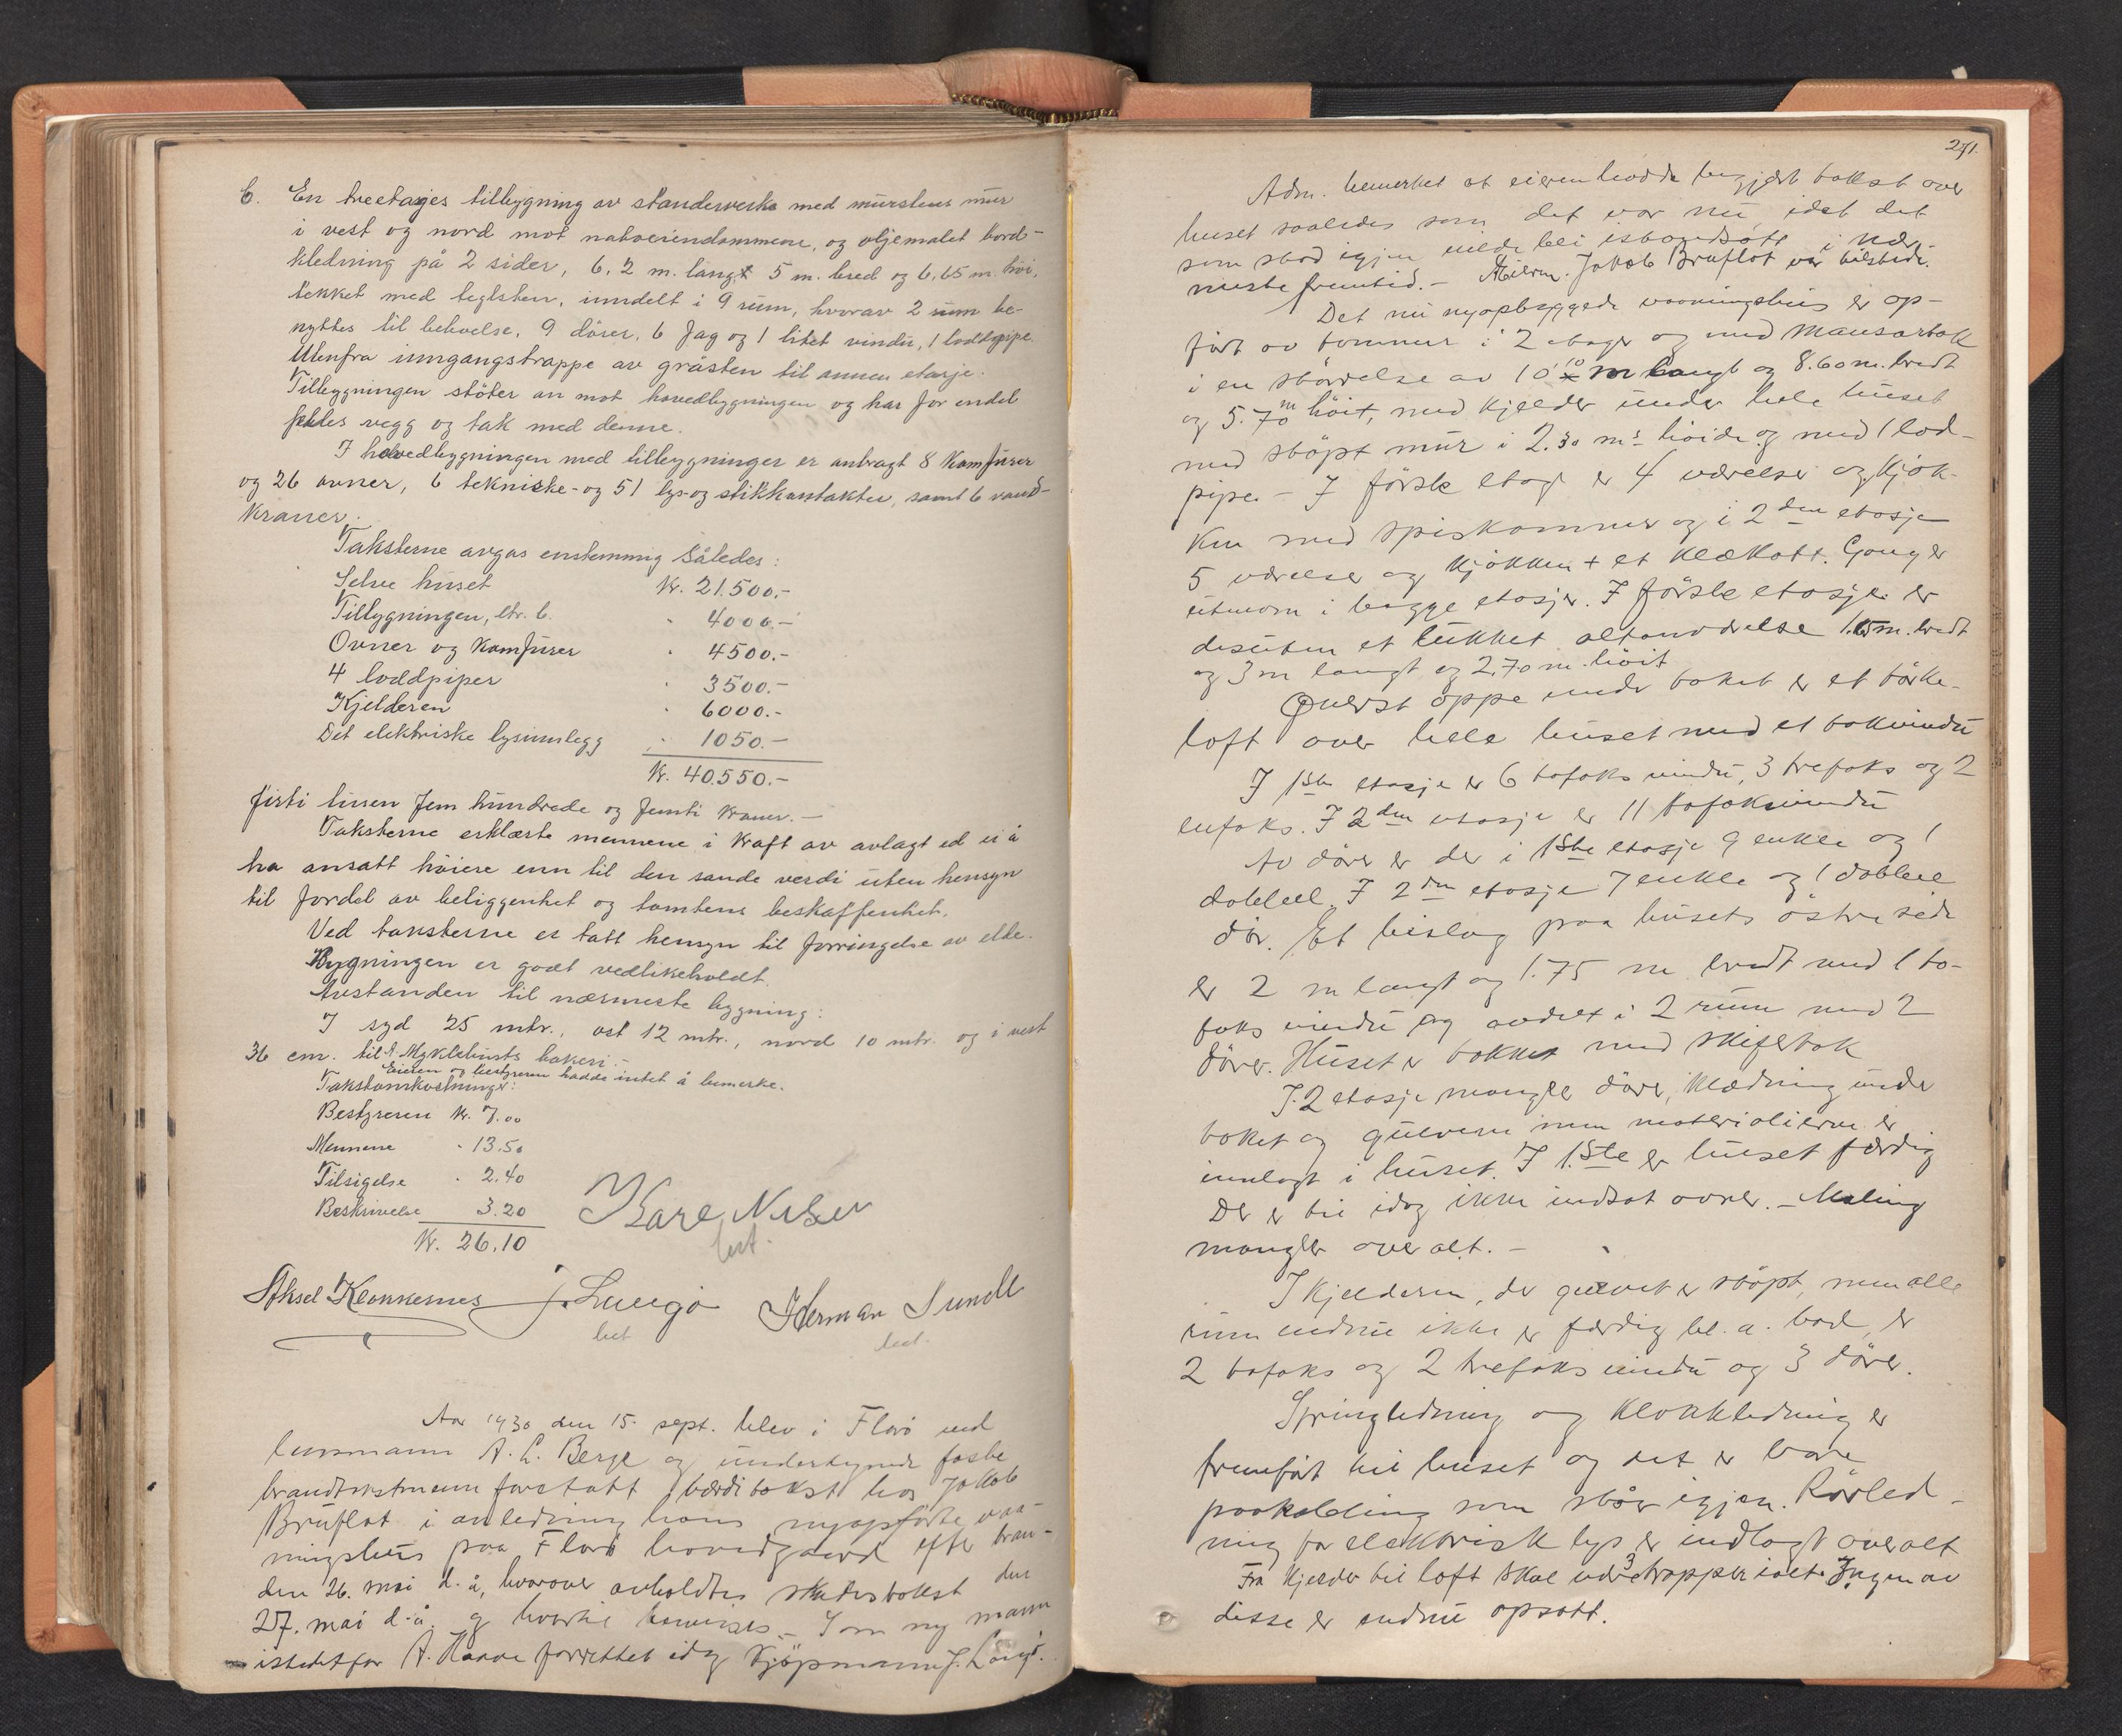 b. En treetages tilbygning av standerverk med murstens mur
i vest og nord mot naboeiendommene, og oljemalet bord-
kledning på 2 sider, 6,2 m. langt 5 m. bred og 6,65 m. høi,
tekket med teglsten, inndelt i 9 rum, hvorav 2 rum be-
nyttes til behvelse, 9 dörer, 6 fag og 1 litet vindu, 1 loddpipe.
Utenfra inngangstrappe av gråsten til annen etasje.
Tilbygningen stöter an mot hovedbygningen og har for endel
felles vegg og tak med denne.
I hovedbygningen med tilbygninger er anbragt 8 komfurer
og 26 ovner, 6 tekniske- og 51 lys- og stikkontakter, samt 6 vand-
kraner.
Taksterne avgas enstemmig således:
Selve huset Kr. 21.500.-
Tilbygningen, ltr. b. " 4000.-
Ovner og komfurer " 4500.-
4 loddpiper " 3500.-
Kjelderen " 6000.-
Det elektriske lysinnlegg " 1050.-
Kr. 40.550.-
firti tusen fem hundrede og femti kroner.-
Taksterne erklærte mennene i kraft av avlagt ed ei å
ha ansatt höiere enn til den sande verdi uten hensyn
til fordel av beliggenhet og tomtens beskaffenhet.
Ved taksterne er tatt hensyn til forringelse av elde.
Bygningen er godt vedlikeholdt.
Avstanden til nærmeste bygning:
I syd 25 mtr., ost 12 mtr., nord 10 mtr. og i vest
36 cm. til A. Myklebusts bakeri.-
Eieren og bestyreren hadde intet å bemerke.
Takstomkostninger:
Bestyreren Kr. 7.00
Mennene " 13.50
Tilsigelse " 2.40
Beskrivelse 3.20
Kr. 26.10
Kare Nilsen
best.
Aksel Klonkernes J. Langø Herman Sunde
best best.
Aar 1930 den 15. sept. blev i Florö ved
lensmann A. L. Berge og undertegnede faste
brandtakstmenn foretatt værditakst hos Jakob
Bruflot i anledning hans nyopförte vaa-
ningshus paa Florö hovedgaard efter bran-
den 26. mai d. å, hvorover avholdtes skadestakst den
27. mai d. å. og hvortil henvises.- Som ny mann
istedetfor A. Haave forrettet idag kjöpmann J. Langö.
271.
Adm. bemerket at eieren hadde begjært takst over
huset saaledes som det var nu, idet det
som stod igjen vilde bli istandsatt i nær-
meste fremtid.- Eieren Jakob Bruflot var tilstede.
Det nu nyopbyggede vaaningshus er op-
fört av tømmer i 2 etager og med Mansartak
i en störrelse av 10.10 m langt og 8.60 m. bredt
og 5.70 m höit, med kjelder under hele huset
med stöpt mur i 2.30 m's höide og med 1 lod-
pipe.- I förste etage er 4 værelser og kjök-
ken med spiskammer og i 2den etasje
5 værelser og kjökken + et klækott. Gang er
utenom i begge etasjer. I förste etasje er
desuten et lukket altanværelse 1.65 m. bredt
og 3 m langt og 2.70 m. höit
Överst oppe under taket er et törke-
loft over hele huset med et takvindu
I 1ste etasje er 6 tofaks vindu, 3 trefaks og 2
enfaks. I 2den etasje er 11 tofaksvindu
Av dörer er der i 1ste etasje 9 enkle og 1
dobbel. I 2den etasje 7 enkle og 1 dobbel
dör. Et bislag paa husets östre side
er 2 m langt og 1.75 m bredt med 1 to-
faks vindu og avdelt i 2 rum med 2
dörer. Huset er tækket med skifertak
I 2 etasje mangler dörer, klædning under
taket og gulvene men materialierne er
innlagt i huset. I 1ste er huset færdig
Der er til idag ikke indsat ovner.- Maling
mangler overalt.-
I kjelderen, der gulvet er stöpt, men alle
rum endnu ikke er færdig bl. a. bad, er
2 tofaks og 2 trefaks vindu og 3 dörer.
Springledning og kloakledning er
fremfört til huset og det er bare
paakobling som står igjen. Rörled-
ning for elektrisk lys er indlagt overalt
Fra kjelder til loft skal være 3 trapper ialt. Ingen av
disse er endnu opsatt.